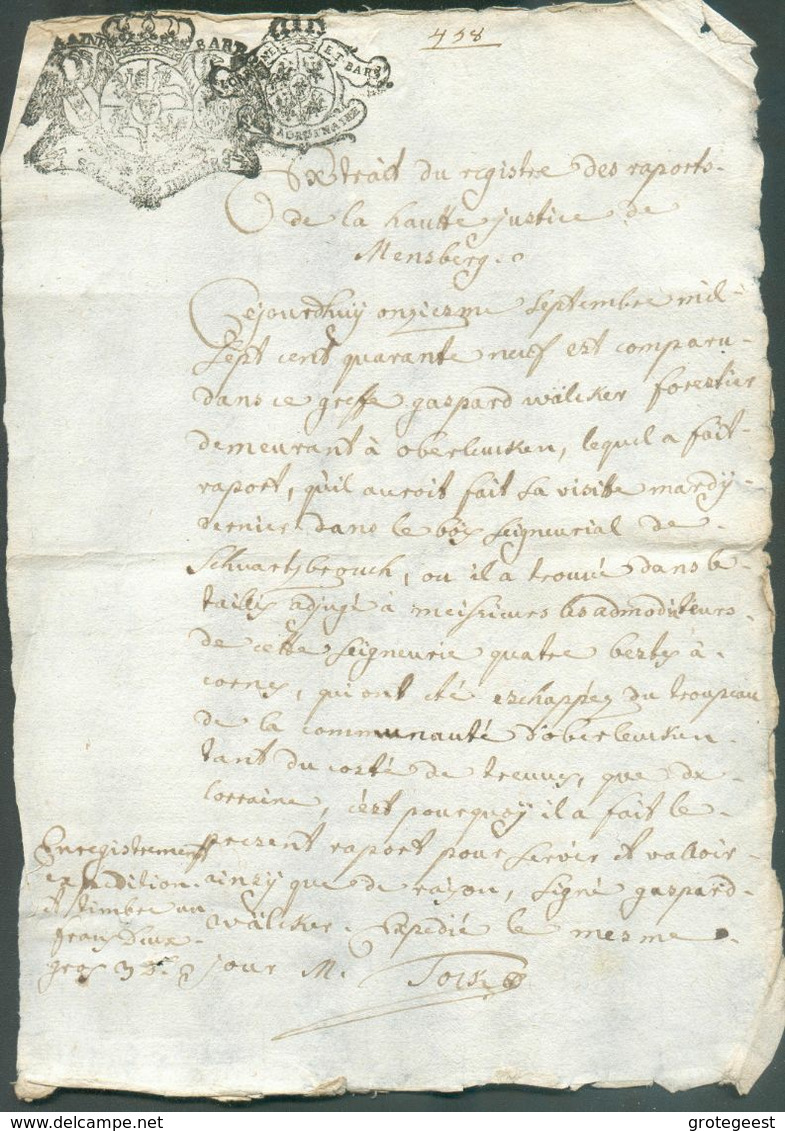 458
LORRAINE ET BARS
Extrait du registre des raports
de la hautte justice de
Mensberg.
Cejourdhuÿ onziesme septembre mil
sept cent quarante neuf est comparu
dans ce greffe gaspard wälcker forestier
demeurant à oberleucken, lequel a fait
raport, qu'il auroit fait sa visitte mardÿ
dernier dans le bois seigneurial de
Schwartzbrouch, ou il a trouvé dans le
taillis adjugé à meissieurs les admodiateurs
de cette seigneurie quatre bestes à
cornes, qui ont été eschappez du troupeau
de la communauté d'oberleucken
tant du costé de treuves, que de
Lorraine, c'est pourquoÿ il a fait le
present raport pour servir et valloir
ainzÿ que de raison, signé gaspard
wälcker. Expedié le mesme
jour M.
Enregistrement
expedition
et timbre un
franc deux
gros
Delcampe.net
grotegeest